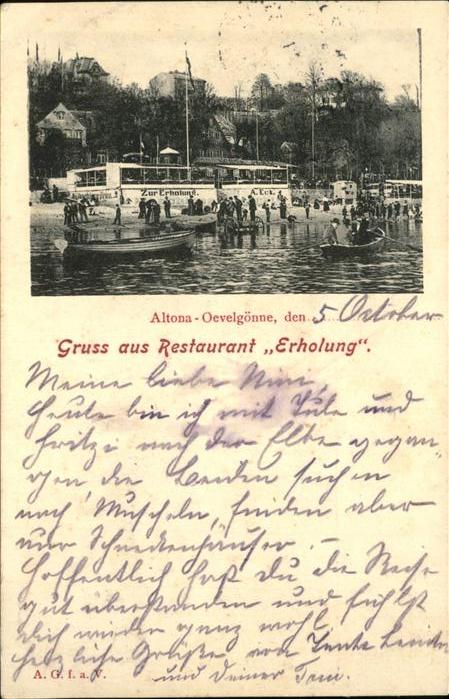 Zur Erholung.
A. Eck.
Altona-Oevelgönne, den 5 October
Gruss aus Restaurant „Erholung".
Meine liebe Mimi,
Heute bin ich mit Jule und
Fritzi nach der Elbe gegan
gen die Beiden suchen
nach Muscheln, finden aber
nur Schneckenhäuser. –
Hoffentlich hast du die Reise
gut überstanden und fühlst
dich wieder ganz wohl.
herzliche Grüße von Tante
und Deiner
A. G. f. a. V.